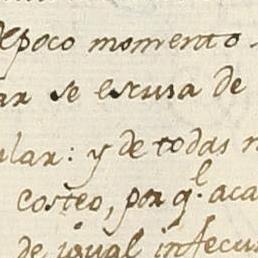 depoco momento.
ar se escusa de
ular: y de todas
costeo, por q.^l aca
de igual infecun